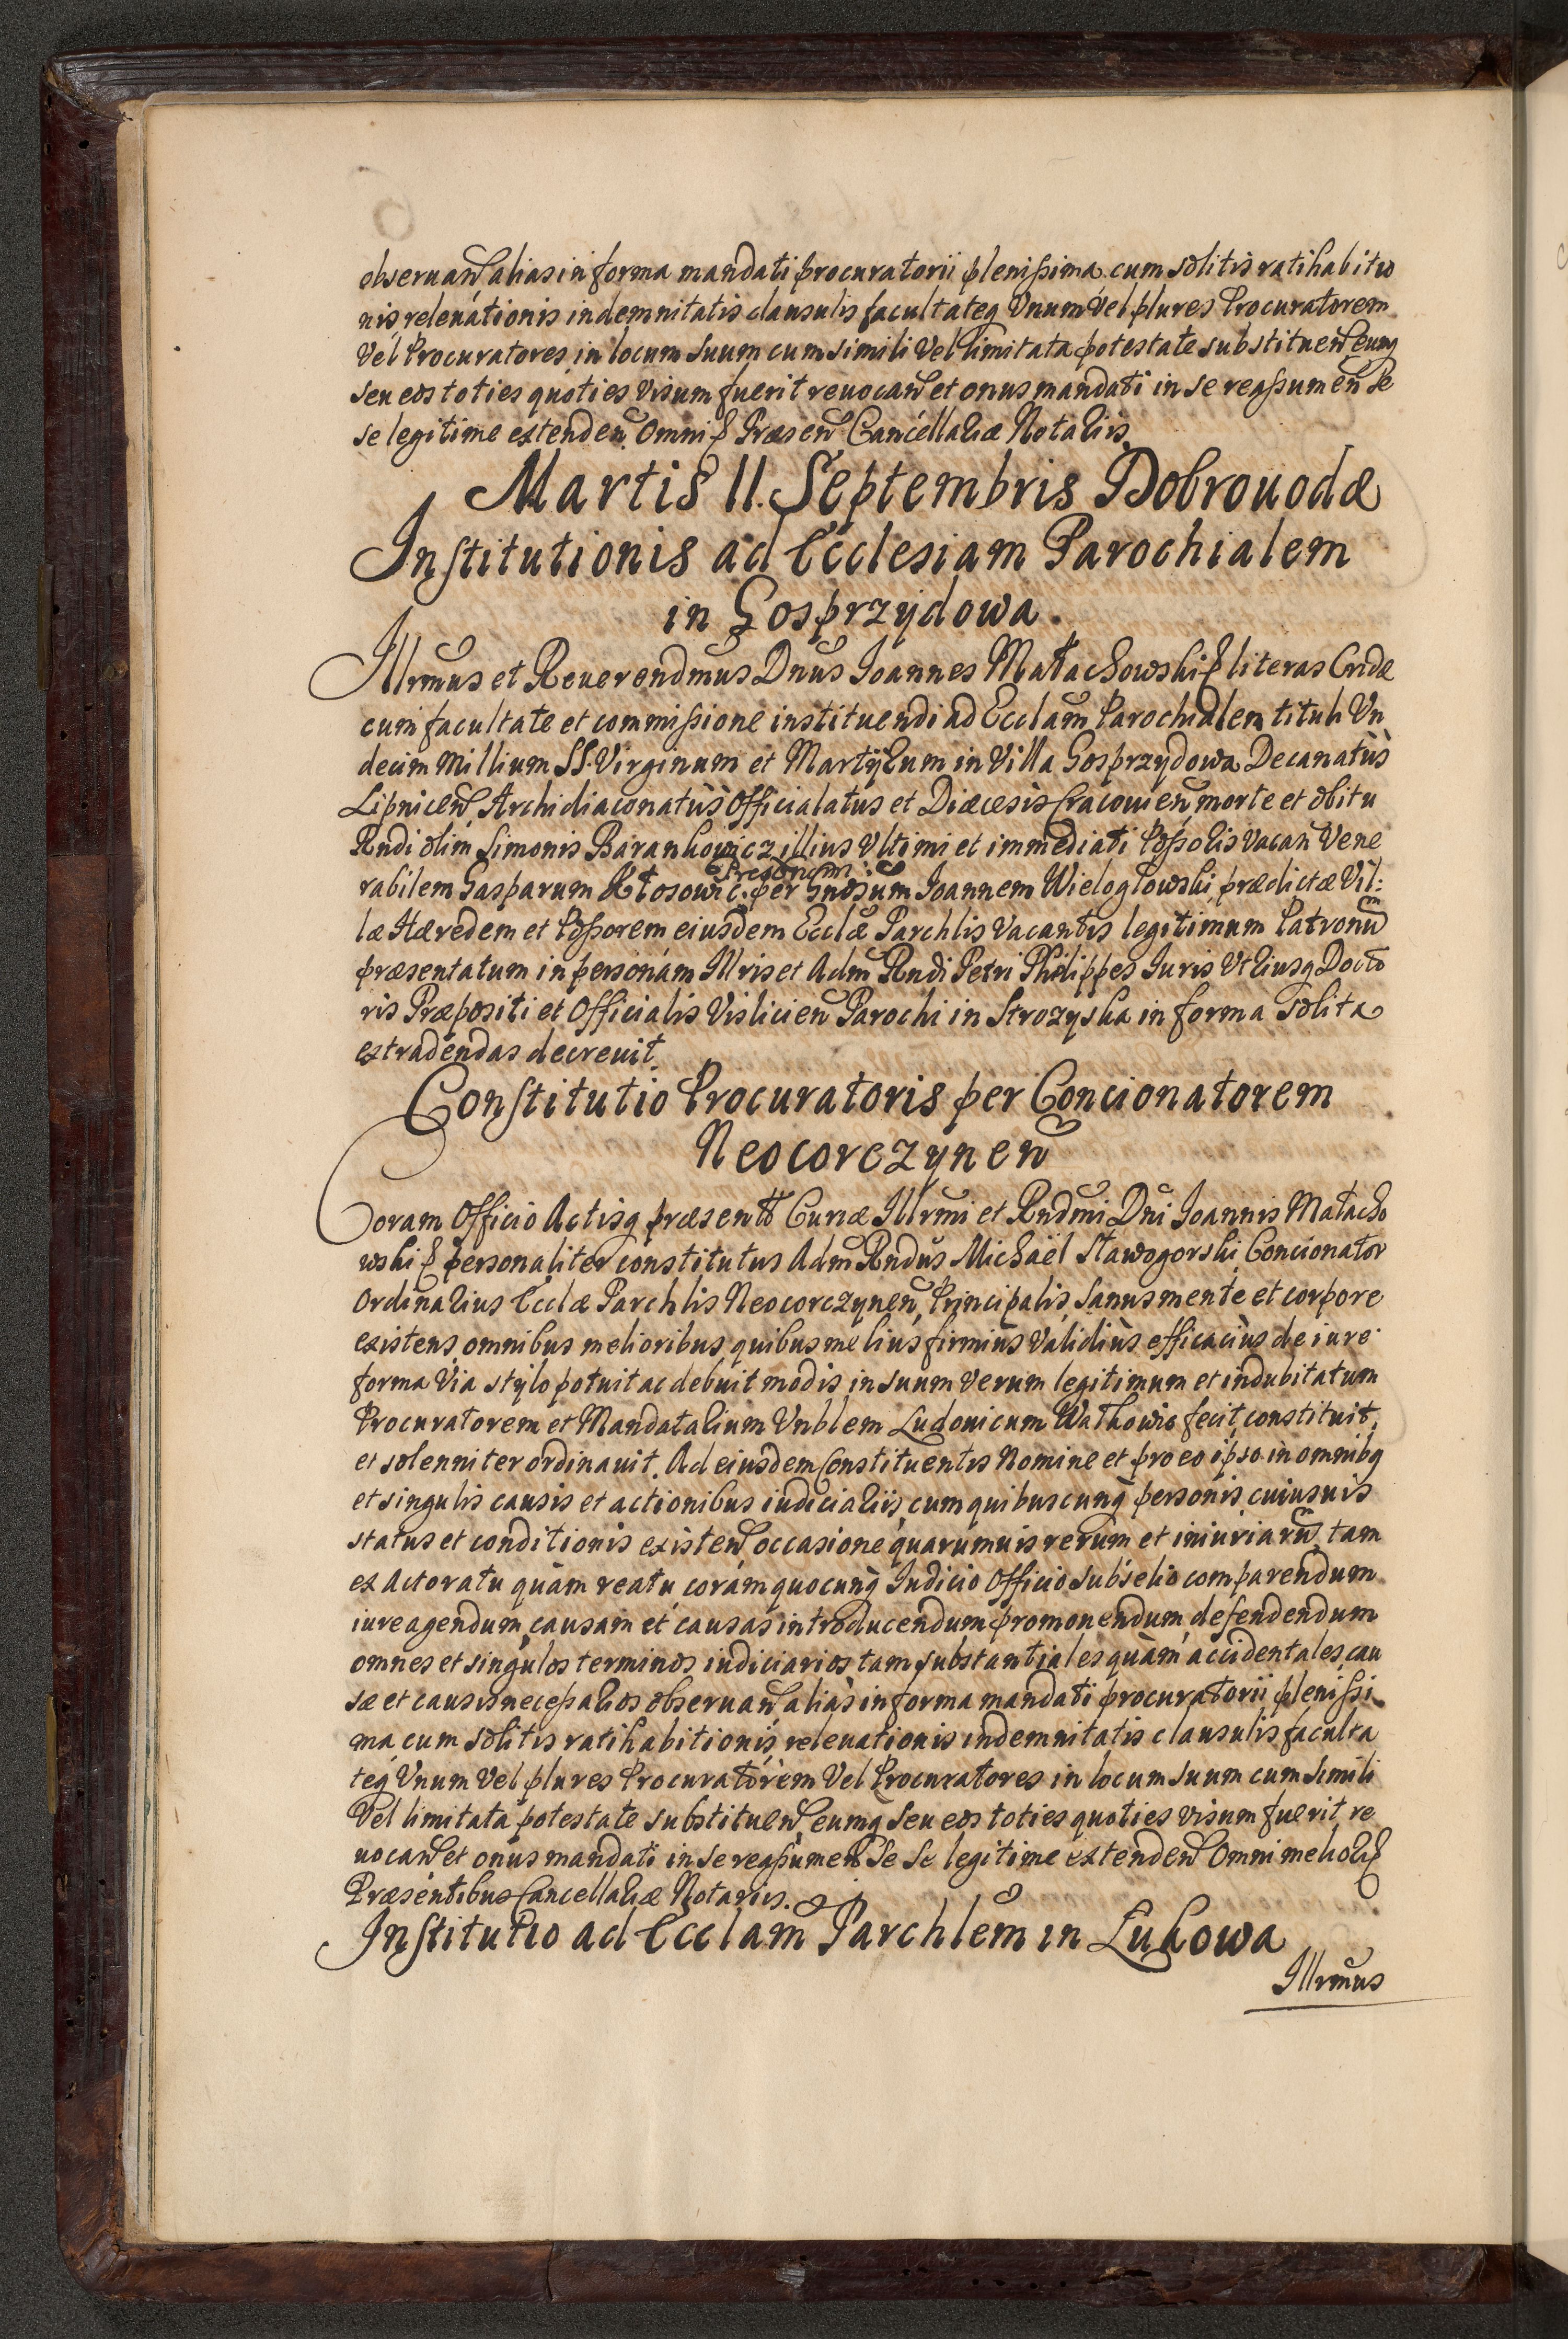 obseruan̄ alias in forma mandati procuratorii plenißima cum solitis ratihabitio
nis releuationis indemnitatis clausulis facultateq Vnum Vel plures Procuratorem
Vel Procuratores in locum suum cum simili Vel limitata potestate substituen̄ eumq
seu eos toties quoties Visum fuerit reuocan̄ et onus mandati in se reaßumen̄ Se
se legitime extenden̄ omni ꝑ Præsen̄ Cancellariæ Notariis
Martis 11. Septembris Dobrouodæ
Institutionis ad Ecclesiam Parochialem
in Gosprzydowa.
Illrm̄us et Reuerendm̄us Dn̄us Ioannes Małachowski ꝑ literas Cridæ
cum facultate et commißione instituendi ad Eccla͞m Parochialem tituli Vn
decim Millium SS. Virginum et Martÿrum in Villa Gosprzydowa Decanatùs
Lipnicen̄, Archidiaconatùs Officialatus et Diæcesis Cracouien̄, morte et obitu
Rndi olim Simonis Barankowicz illius Vltimi et immediati Poßoris Vacan̄ Vene
rabilem Gasparum Kłosowic. per Gnosum Ioannem Wielogłowski prædictæ Vil:
læ Hæredem et Poßorem eiusdem Ecclæ Parchlis Vacantis legitimum Patronu͞m
præsentatum in personam Illris et Adm̄ Rndi Petri Philippes Iuris Vtriusq Docto
ris Præpositi et Officialis Vislicien̄ Parochi in Strozyska in forma solita
extradendas decreuit.
Constitutio Procuratoris per Concionatorem
Neocorczynen̄
Coram Officio Actisq præsentb Curiæ Illrm̄i et Rndm̄i Dn̄i Ioannis Małacho
wski ꝑ personaliter constitutus Adm̄ Rndus Michaël Stawogorski Concionator
Ordinarius Ecclæ Parchlis Neocorczynen̄, Principalis, Sanus mente et corpore
existens, omnibus melioribus quibus melius firmiùs Validiùs efficaciùs de iure
forma Via stylo potuit ac debuit modis in suum Verum legitimum et indubitatum
Procuratorem et Mandatarium Vnblem Ludouicum Wathowic fecit, constituit,
et solenniter ordinauit. Ad eiusdem Constituentis Nomine et pro eo ipso in omnibq
et singulis causis et actionibus iudiciariis, cum quibuscunq personis, cuiusuis
status et conditionis existen̄, occasione quarumuis rerum et iniuriaru͞m, tam
ex Actoratu quàm reatu coràm quocunq Iudicio Officio subselio comparendum
iure agendum, causam et causas introducendum promouendum, defendendum
omnes et singulos terminos iudiciarios tam substantiales quàm accidentales, cau
sæ et causis neceßarios obseruan̄, aliàs in forma mandati procuratorii plenißi
ma, cum solitis ratihabitionis, releuationis indemnitatis clausulis faculta
teq Vnum Vel plures Procuratorem Vel Procuratores in locum suum cum Simili
Vel limitata potestate substituen̄, eumq Seu eos toties quoties visum fuerit re
uocan̄ et onus mandati in se reaßumen̄ Se Se legitime extenden̄ Omni meliori ꝑ
Præsentibus Cancellariæ Notariis.
Institutio ad Eccla͞m Parchlem in Lukowa
Illrm̄us